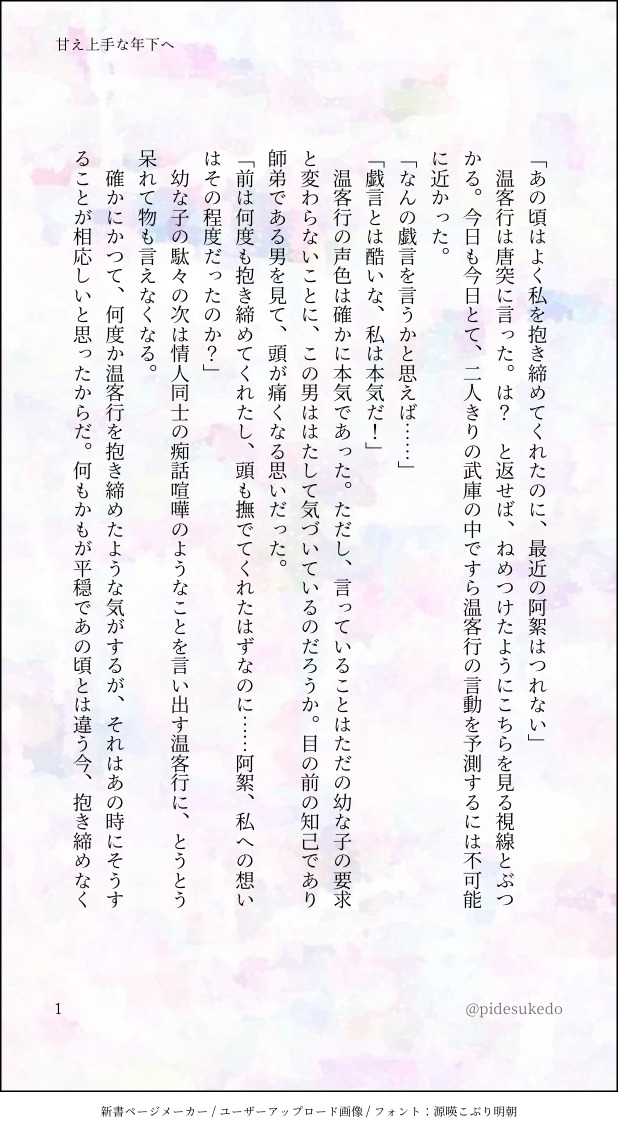 甘え上手な年下へ
「あの頃はよく私を抱き締めてくれたのに、最近の阿絮はつれない」
　温客行は唐突に言った。は？　と返せば、ねめつけたようにこちらを見る視線とぶつ
かる。今日も今日とて、二人きりの武庫の中ですら温客行の言動を予測するには不可能
に近かった。
「なんの戯言を言うかと思えば……」
「戯言とは酷いな、私は本気だ！」
　温客行の声色は確かに本気であった。ただし、言っていることはただの幼な子の要求
と変わらないことに、この男ははたして気づいているのだろうか。目の前の知己であり
師弟である男を見て、頭が痛くなる思いだった。
「前は何度も抱き締めてくれたし、頭も撫でてくれたはずなのに……阿絮、私への想い
はその程度だったのか？」
　幼な子の駄々の次は情人同士の痴話喧嘩のようなことを言い出す温客行に、とうとう
呆れて物も言えなくなる。
　確かにかつて、何度か温客行を抱き締めたような気がするが、それはあの時にそうす
ることが相応しいと思ったからだ。何もかもが平穏であの頃とは違う今、抱き締めなく
1
@pidesukedo
新書ページメーカー / ユーザーアップロード画像 / フォント：源暎こぶり明朝